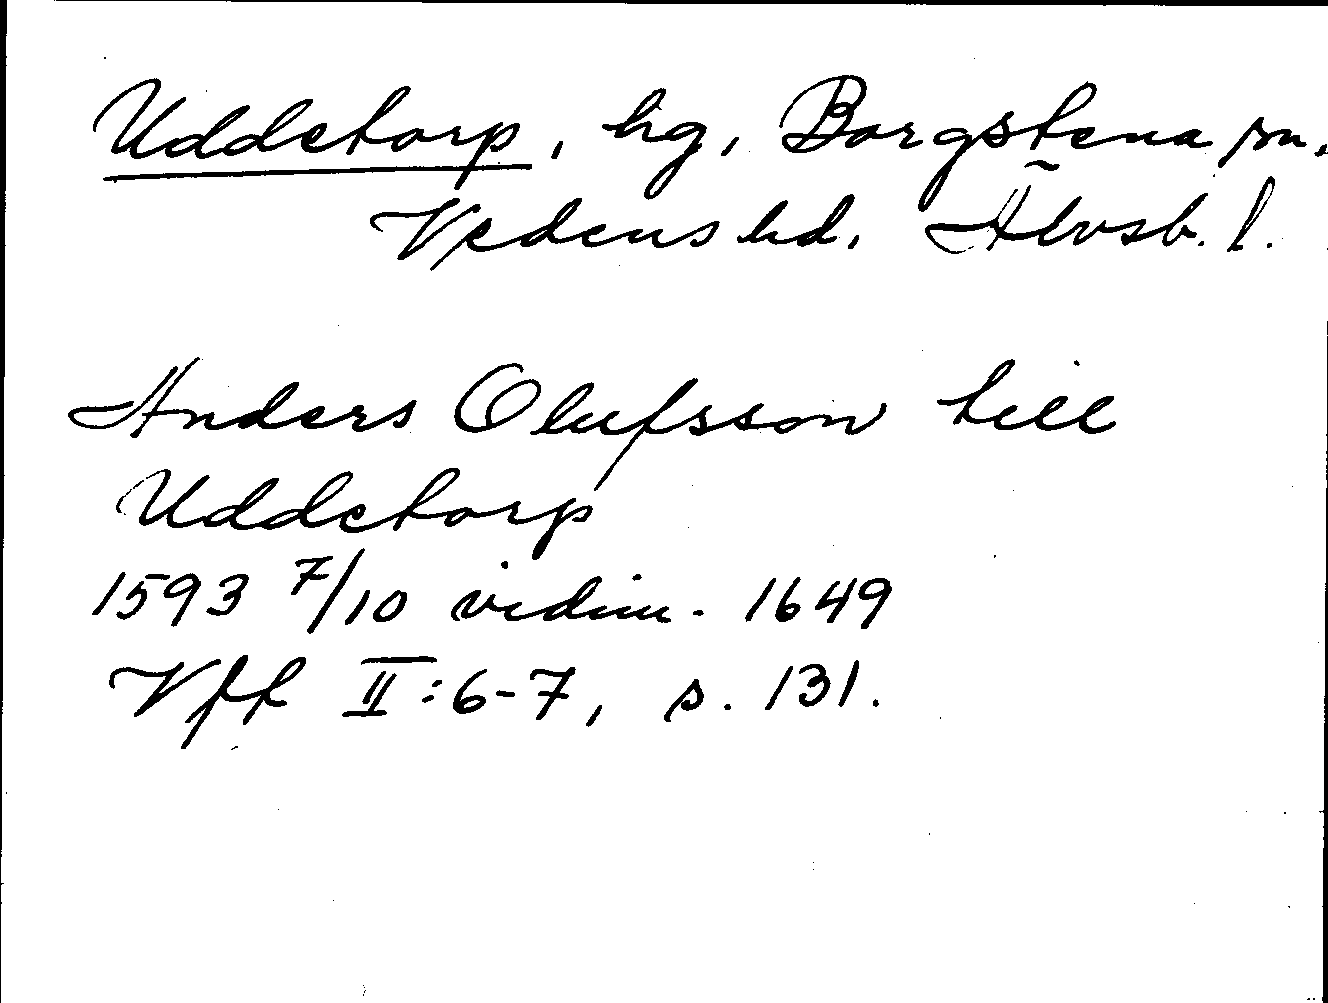 Uddetorp, hg, Borgstena sn,
Vedens hd. Älvsb. l.
Anders Olufsson till
Uddetorp
1593 7/10 vidim. 1649
Vff II:6-7, s. 131.